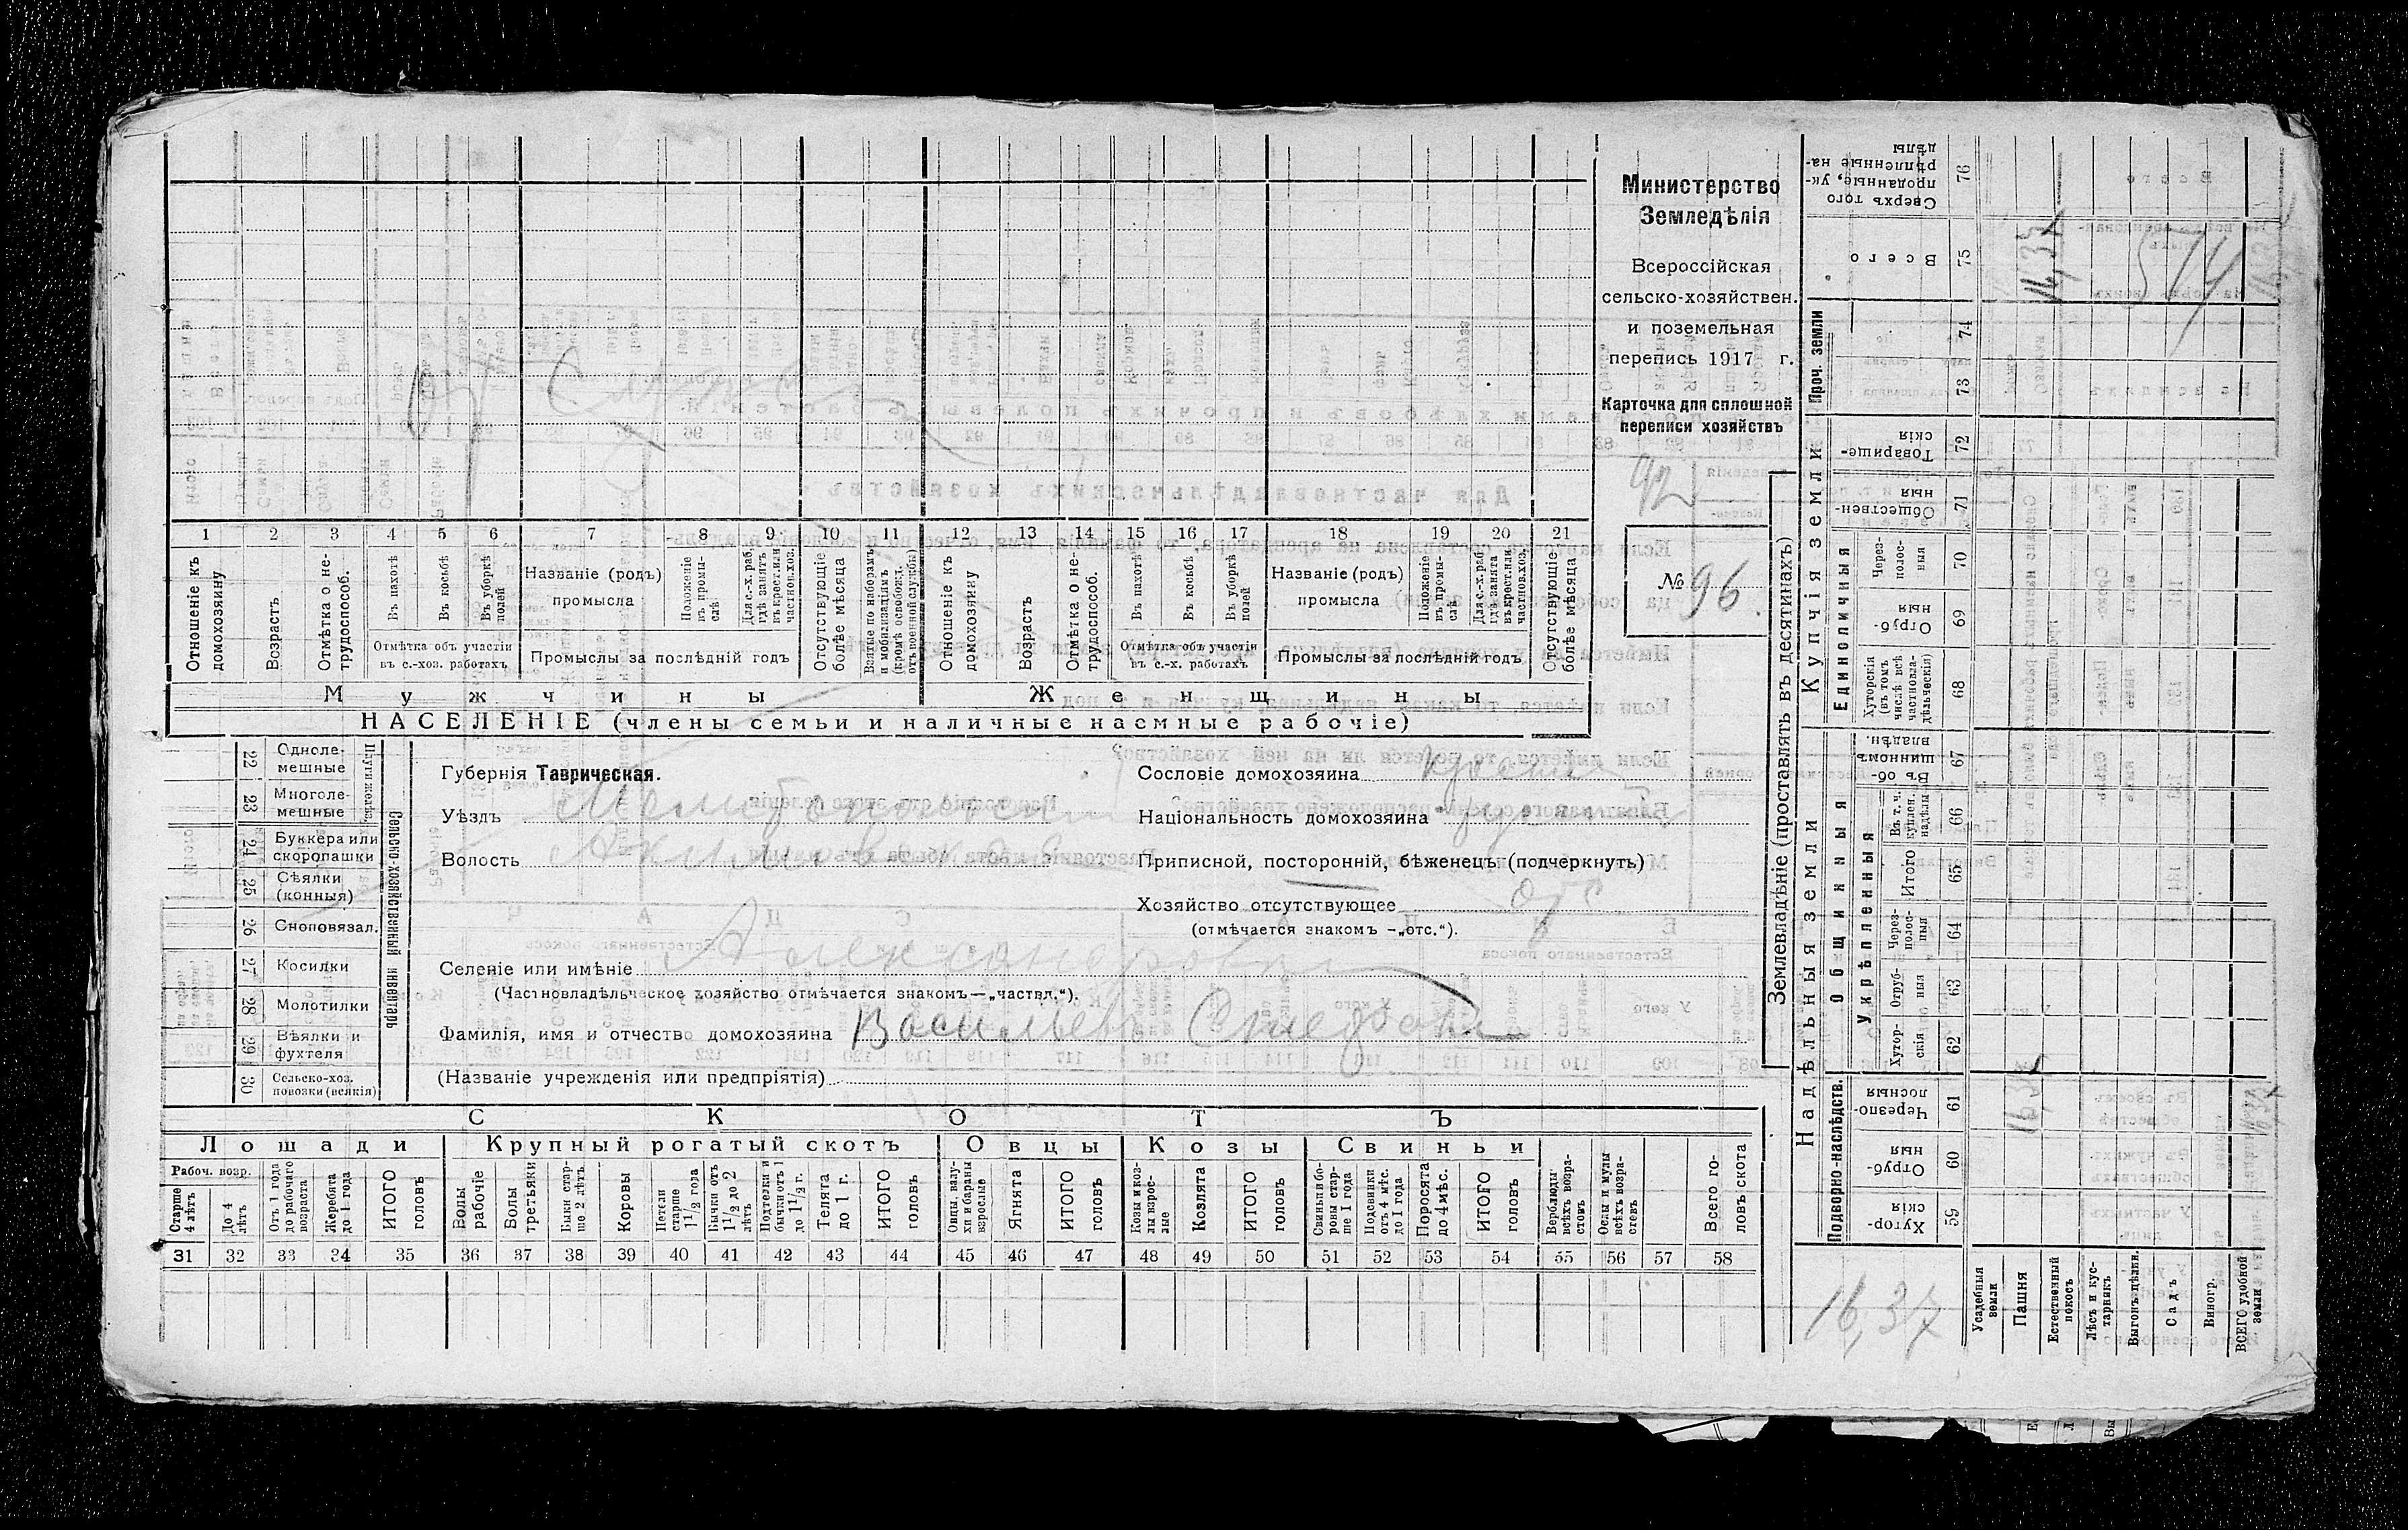 Министерство
Земледѣлія
Всероссійская
сельско-хозяйствен.
и поземельная
перепись 1917 г.
Карточка для сплошной
переписи хозяйствъ
92
№ 96.
1 2 3 4 5 6 7 8 9 10 11 12 13 14 15 16 17 18 19 20 21
Отношеніе къ домохозяину
Возрастъ
Отмѣтка о не-трудоспособ.
Въ пахотѣ
Въ косьбѣ
Въ уборкѣ полей
Отмѣтка объ участіи
въ с.-хоз. работахъ
Названіе (родъ)
промысла
Положеніе въ промы-слѣ
Для с.-х. раб. гдѣ занятъ въ крест. или частнов. хоз.
Промыслы за послѣдній годъ
Отсутствующіе болѣе мѣсяца
Взятые по наборамъ и мобилизаціямъ (кромѣ освобожд. отъ военной службы)
Отношеніе къ домохозяину
Возрастъ
Отмѣтка о не-трудоспособ.
Въ пахотѣ
Въ косьбѣ
Въ уборкѣ полей
Отмѣтка объ участіи
въ с.-х. работахъ
Названіе (родъ)
промысла
Положеніе въ промы-слѣ
Для с.-х. раб. гдѣ занята въ крест. или частнов. хоз.
Промыслы за послѣдній годъ
Отсутствующіе болѣе мѣсяца
Мужчины Женщины
НАСЕЛЕНІЕ (члены семьи и наличные наемные рабочіе)
22 Одноле-мешные
23 Многоле-мешные
24 Буккера или скоропашки
25 Сѣялки (конныя)
26 Сноповязал.
27 Косилки
28 Молотилки
29 Вѣялки и фухтеля
30 Сельско-хоз. повозки (всякія)
Сельско-хозяйственный инвентарь
Губернія Таврическая.
Уѣздъ Мелитопольскій
Волость Акимовская
Селеніе или имѣніе Александровка
(Частновладѣльческое хозяйство отмѣчается знакомъ—„частвл.“).
Фамилія, имя и отчество домохозяина Васильевъ
(Названіе учрежденія или предпріятія)
Сословіе домохозяина крест
Національность домохозяина
Приписной, посторонній, бѣженецъ (подчеркнуть)
Хозяйство отсутствующее отс
(отмѣчается знакомъ -„отс.“).
СКОТЪ
Лошади Крупный рогатый скотъ Овцы Козы Свиньи
Рабоч. возр.
Старше 4 лѣтъ
До 4 лѣтъ
Отъ 1 года до рабочаго возраста
Жеребята до 1 года
ИТОГО головъ
Волы рабочіе
Волы третьяки
Быки стар-ше 2 лѣтъ
Коровы
Нетели старше 1½ года
Бычки отъ 1½ до 2 лѣтъ
Подтелки и бычки отъ 1 до 1½ г.
Телята до 1 г.
ИТОГО головъ
Овцы, валу-хи и бараны взрослые
Ягнята
ИТОГО головъ
Козы и коз-лы взрос-лые
Козлята
ИТОГО головъ
Свиньи и бо-ровы стар-ше 1 года
Подсвинки отъ 4 мѣс. до 1 года
Поросята до 4 мѣс.
ИТОГО головъ
Верблюды всѣхъ возра-стовъ
Ослы и мулы всѣхъ возра-стовъ
Всего го-ловъ скота
31 32 33 34 35 36 37 38 39 40 41 42 43 44 45 46 47 48 49 50 51 52 53 54 55 56 57 58
Землевладѣніе (проставлять въ десятинахъ)
Надѣльныя земли Купчія земли Проч. земли
Подворно-наслѣдств.
Общинныя
Укрѣпленныя
Единоличныя
59 Хутор-скія
60 Отруб-ныя
61 Черезпо-лосныя
62 Хутор-скія
63 Отруб-ныя
64 Через-полос-ныя
65 Итого
66 Въ т. ч. куплен. надѣлы
67 Въ об-щинномъ владѣн.
68 Хуторскія (въ томъ числѣ всѣ частновла-дѣльческія)
69 Отруб-ныя
70 Через-полос-ныя
71 Обществен-ныя
72 Товарище-скія
73
74
75 Всего
76 Сверхъ того проданные, ук-рѣпленные на-дѣлы
Усадебныя земли
Пашня
Естественный покосъ
Лѣсъ и кус-тарникъ
Выгонъ дѣлян.
Садъ
Виногр.
ВСЕГО удобной земли
16,37
16,37
16,37